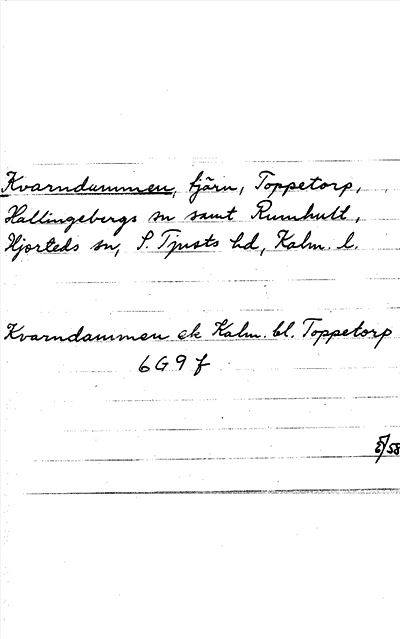 Kvarndammen, tjärn, Toppetorp,
Hallingebergs sn samt Rumhult,
Hjorteds sn, S. Tjusts hd, Kalm. l.
Kvarndammen ek Kalm. bl. Toppetorp
6G9f
/58